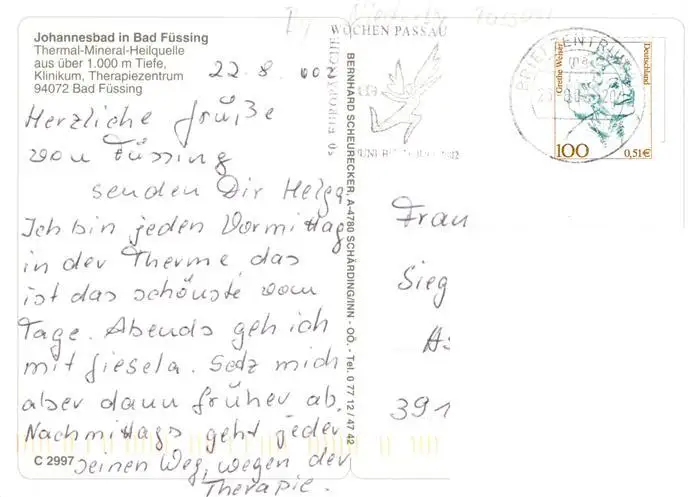 Johannesbad in Bad Füssing
Thermal-Mineral-Heilquelle
aus über 1.000 m Tiefe,
Klinikum, Therapiezentrum
94072 Bad Füssing
22.8.002
Herzliche Grüße
von Füssing
senden Dir Helga
Ich bin jeden Vormittag
in der Therme, das
ist das schönste vom
Tage. Abends geh ich
mit Giesela. Setz mich
aber dann früher ab.
Nachmittags geht jeder
seinen Weg, wegen der
Therapie.
C 2997
BERNHARD SCHEURECKER, A-4780 SCHÄRDING/INN - OÖ. - Tel. 0 77 12 / 47 42
WOCHEN PASSAU
BRIEFZENTRUM
Grethe Weiser
Deutschland
100
0,51€
Frau
Sieg
391